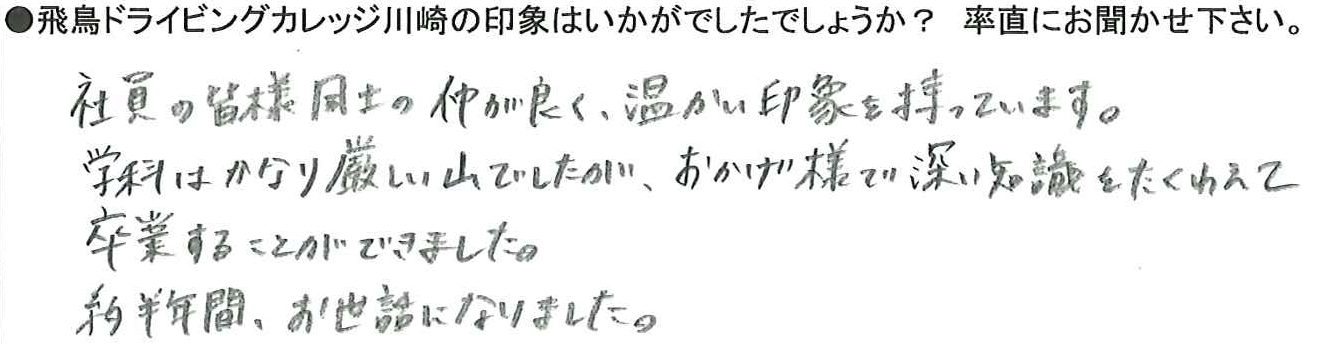 ●飛鳥ドライビングカレッジ川崎の印象はいかがでしたでしょうか？ 率直にお聞かせ下さい。
社員の皆様同士の仲が良く、温かい印象を持っています。
学科はかなり厳しい山でしたが、おかげ様で深い知識をたくわえて
卒業することができました。
約半年間、お世話になりました。